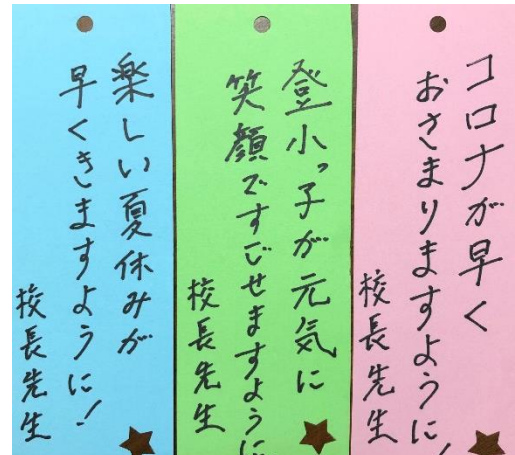 コロナが早く
おさまりますように!
校長先生
登小っ子が元気に
笑顔ですごせますように
校長先生
楽しい夏休みが
早くきますように!
校長先生